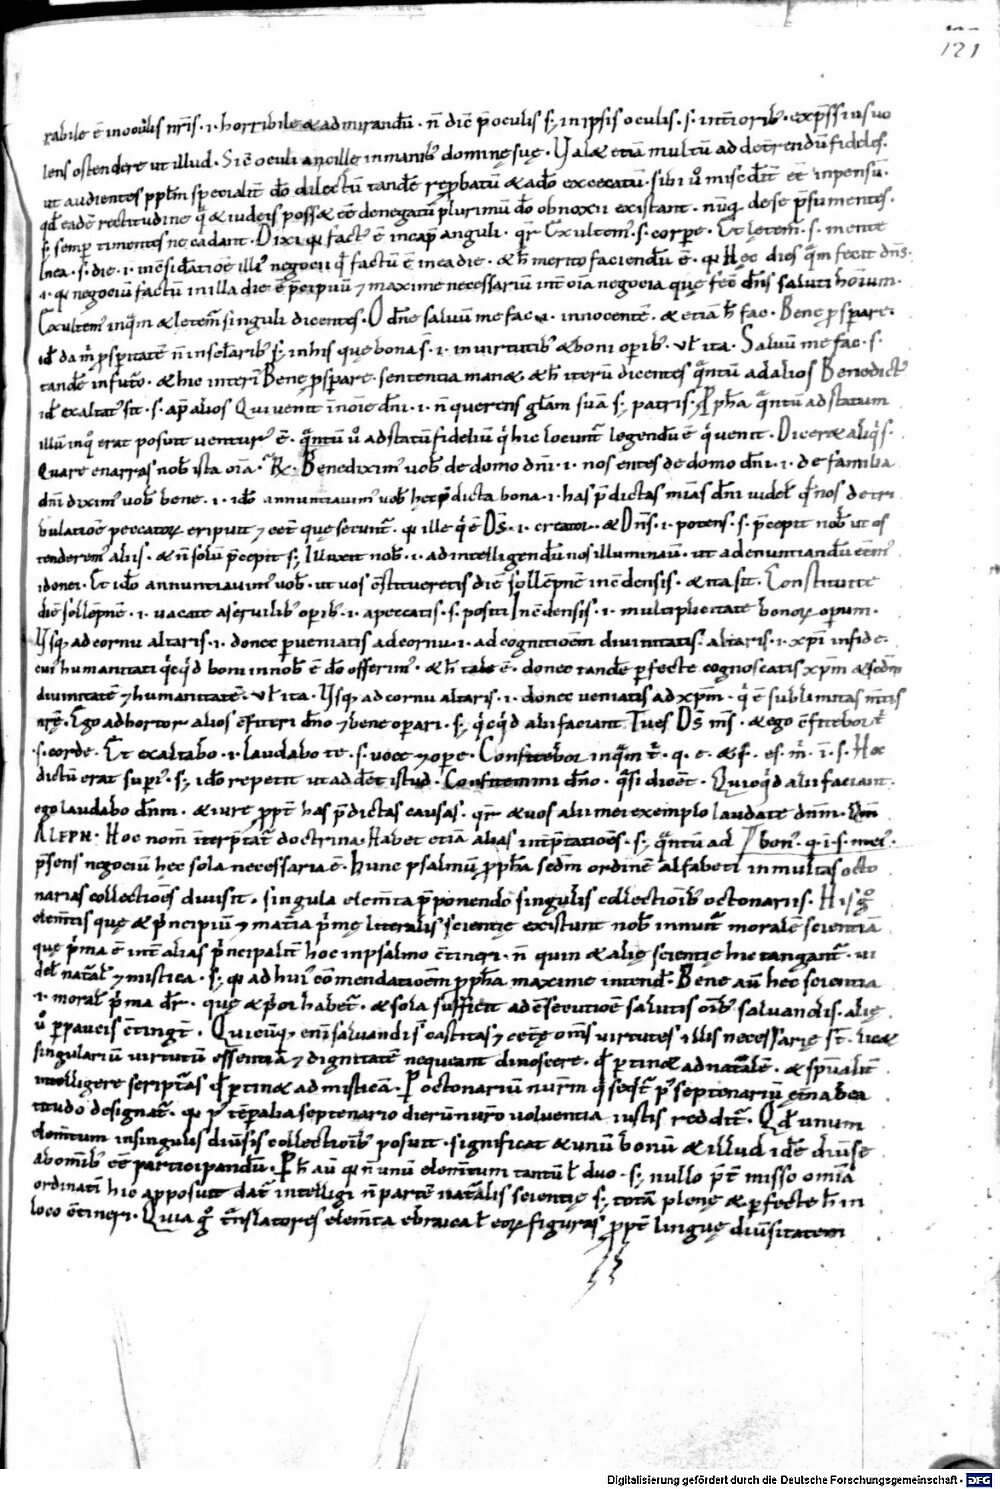 121
rabile ē in oculis nr̄is · i · horribile & admirandū · n̄ dic̄ p̄ oculis s; in ipsis oculis · s · int̄iorib; · exp̄ssius uo
lens ostendere ut illud · Sic̄ oculi ancille in manib; dominę suę · Valet etiā multū ad det̄rendū fideles ·
ut audientes pp̄lm specialit̄ dō dilectū tandē rep̄batū & adō excecatū · sibi ū miscd̄it̄ eē inpensū ·
qd̄ eadē rectitudine q̄ & iudeis poss& eē denegatū plurimū dō obnoxii existant · nūq̄ de se p̄sumentes ·
s; semp̄ timentes ne cadant · Dixi qd̄ fact' ē in cap̄ anguli · qr̄ Exultem' · s · corpore · Et lętem' · s · mente
In ea · s · die · i · in c̄sid̄atiōe illi' negocii qd̄ factū ē in ea die · & h̄ merito faciendū ē · qd̄ Hęc dies q̄m fecit dn̄s ·
i · qd̄ negociū factū in illa die ē p̄cipuū & maxime necessariū int̄ oīa negocia quę fec̄ dn̄s saluti hoīum ·
Exultem' inq̄m & letem' singuli dicentes · O dn̄e saluū me fac · i · innocentē · & etiā h̄ fac · Bene p̄sperare ·
id ē da m̄ p̄speritatē n̄ in sc̄larib; s; in his que bona s̄ · i · in uirtutib; & boni op̄ib; · ul̄ ita · Saluū me fac · s ·
tandē in fut̄o · & hic int̄im Bene p̄sperare · sententia man& · & h̄ iterū dicentes q̄ntū ad alios Benedict'
id ē exaltat' sit · s · ap̄ alios Qui uenit in noīe dn̄i · i · n̄ querens gl̄am suā s; patris · Pp̄ha q̄ntū ad statum
illū in q̄ erat posuit ventur' ē · q̄ntū ū ad statū fideliū q̄ hic locunt̄ legendū ē q̄ uenit · Diceret aliq̄s ·
Quare enarras nob̄ ista oīa · R̄ · Benedixim' uob̄ de domo dn̄i · i · nos entes de domo dn̄i · i · de familia
dn̄i dixim' uob̄ bene · i · idō annuntiauim' uob̄ hec p̄dicta bona · i · has p̄dictas mīas dn̄i uidel̄ qd̄ nos de tri
bulatiōe peccator̄ eripuit & cet̄ que secunt̄ · qd̄ ille q̄ ē Ds̄ · i · creator · & Dn̄s · i · potens · s · p̄cepit nob̄ ut os
tenderem' aliis · & n̄ solū p̄cepit s; Illuxit nob̄ · i · ad intelligendū nos illuminau̅ · ut ad enuntiandū eēm'
idonei · Et idō annuntiauim' uob̄ · ut uos c̄stitueretis diē sollēpnē in c̄densis · & ita sit · Constituite
diē sollēpnē · i · uacate a seruilib; op̄ib; · i · a peccatis · s · positi In c̄densis · i · multiplicitate bonor̄ operum ·
Vsq; ad cornu altaris · i · donec p̄ueniatis ad cornu · i · ad cognitioēm diuinitatis · altaris · i · xp̄i in fide ·
cui' humanitati q̄cq̄d boni in nob̄ ē dō offerim' · & h̄ tale ē · donec tandē p̄fecte cognoscatis xp̄m & sc̄dm
diuinitatē & humanitatē · ul̄ ita · Vsq; ad cornu altaris · i · donec ueniatis ad xp̄m · q̄ ē sublimitas m̄tis
nr̄ę · Ego adhortor alios c̄fiteri dn̄o & bene operari · s; q̄cq̄d alii faciant Tu es Ds̄ m̄s · & ego c̄fitebor t̄
· s · corde · Et exaltabo · i · laudabo te · s · uoce & ope · Confitebor inq̄m t̄ · q · e · & f · es · m̄ · i · s · Hoc
dictū erat sup̄i' · s; idō repetit ut addet̄ istud · Confitemini dn̄o · q̄si dicet̄ · Quicq̄d alii faciant ·
ego laudabo dn̄m · & iure p̄p̄t̄ has p̄dictas causas · qr̄ & uos alii mei exemplo laudate dn̄m
ALEPH · Hoc nom̄ int̄p̄tat̄ doctrina · Habet etiā alias int̄p̄tationēs · s; q̄ntū ad bon' · q · i · s · mei' ·
p̄sens negociū hec sola necessaria ē · Hunc psalmū p̄p̄ha sc̄dm ordinē alfabeti in multas octo
narias collectiōes diuisit · singula elem̄ta p̄ponendo singulis collectiōib; octonariis · His ḡ
elem̄tis quę & p̄ncipiū & mat̄ia p̄mę literalis scientię existunt nob̄ innuit̄ moralē scientiā
que p̄ma ē int̄ alias p̄ncipalit̄ hoc in psalmo c̄tineri · n̄ quin & alię scientię hic tangant̄ · ui
del̄ nat̄al' & mistica · s; qd̄ ad hui' cōmendatioēm p̄p̄ha maxime intend̄ · Bene aū hec scientia
· i · moral' p̄ma dr̄ · quę & p̄or habet̄ · & sola sufficit ad c̄secutioē salutis oīb; saluandis · alię
ū p̄paucis c̄tingt̄ · Quicūq; enī saluandi s̄ castitas & cet̄ę om̄s uirtutes illis necessarię s̄t · licet
singulariū uirtutū essentiā & dignitatē nequeant dinoscere · qd̄ p̄tinet ad nat̄alē · & sp̄ualit̄
intelligere scripturas qd̄ p̄tinet ad misticā · P̄ octonariū num̄ q̄ seq̄t̄ p' septenariū et̄na bea
titudo designat̄ · qd̄ p' tēp̄alia septenario dierū num̄o uoluentia iustis reddit̄ · Qd̄ unum
elem̄tum in singulis diūsis collectiōib; posuit · significat & unū bonū & illud idē diūse
ab omīb; eē participandū · P̄ h̄ aū qd̄ n̄ unū elem̄tum tantū l̄ duo · s; nullo p̄t̄ misso omīa
ordinati hic apposuit dat̄ intelligi n̄ partē nat̄alis scientię s; totā plenę & p̄fecte h̄ in
loco c̄tineri · Quia ḡ t̄nslatores elem̄ta ebraica l̄ eor̄ figuras p̄p̄t̄ linguę diūsitatem